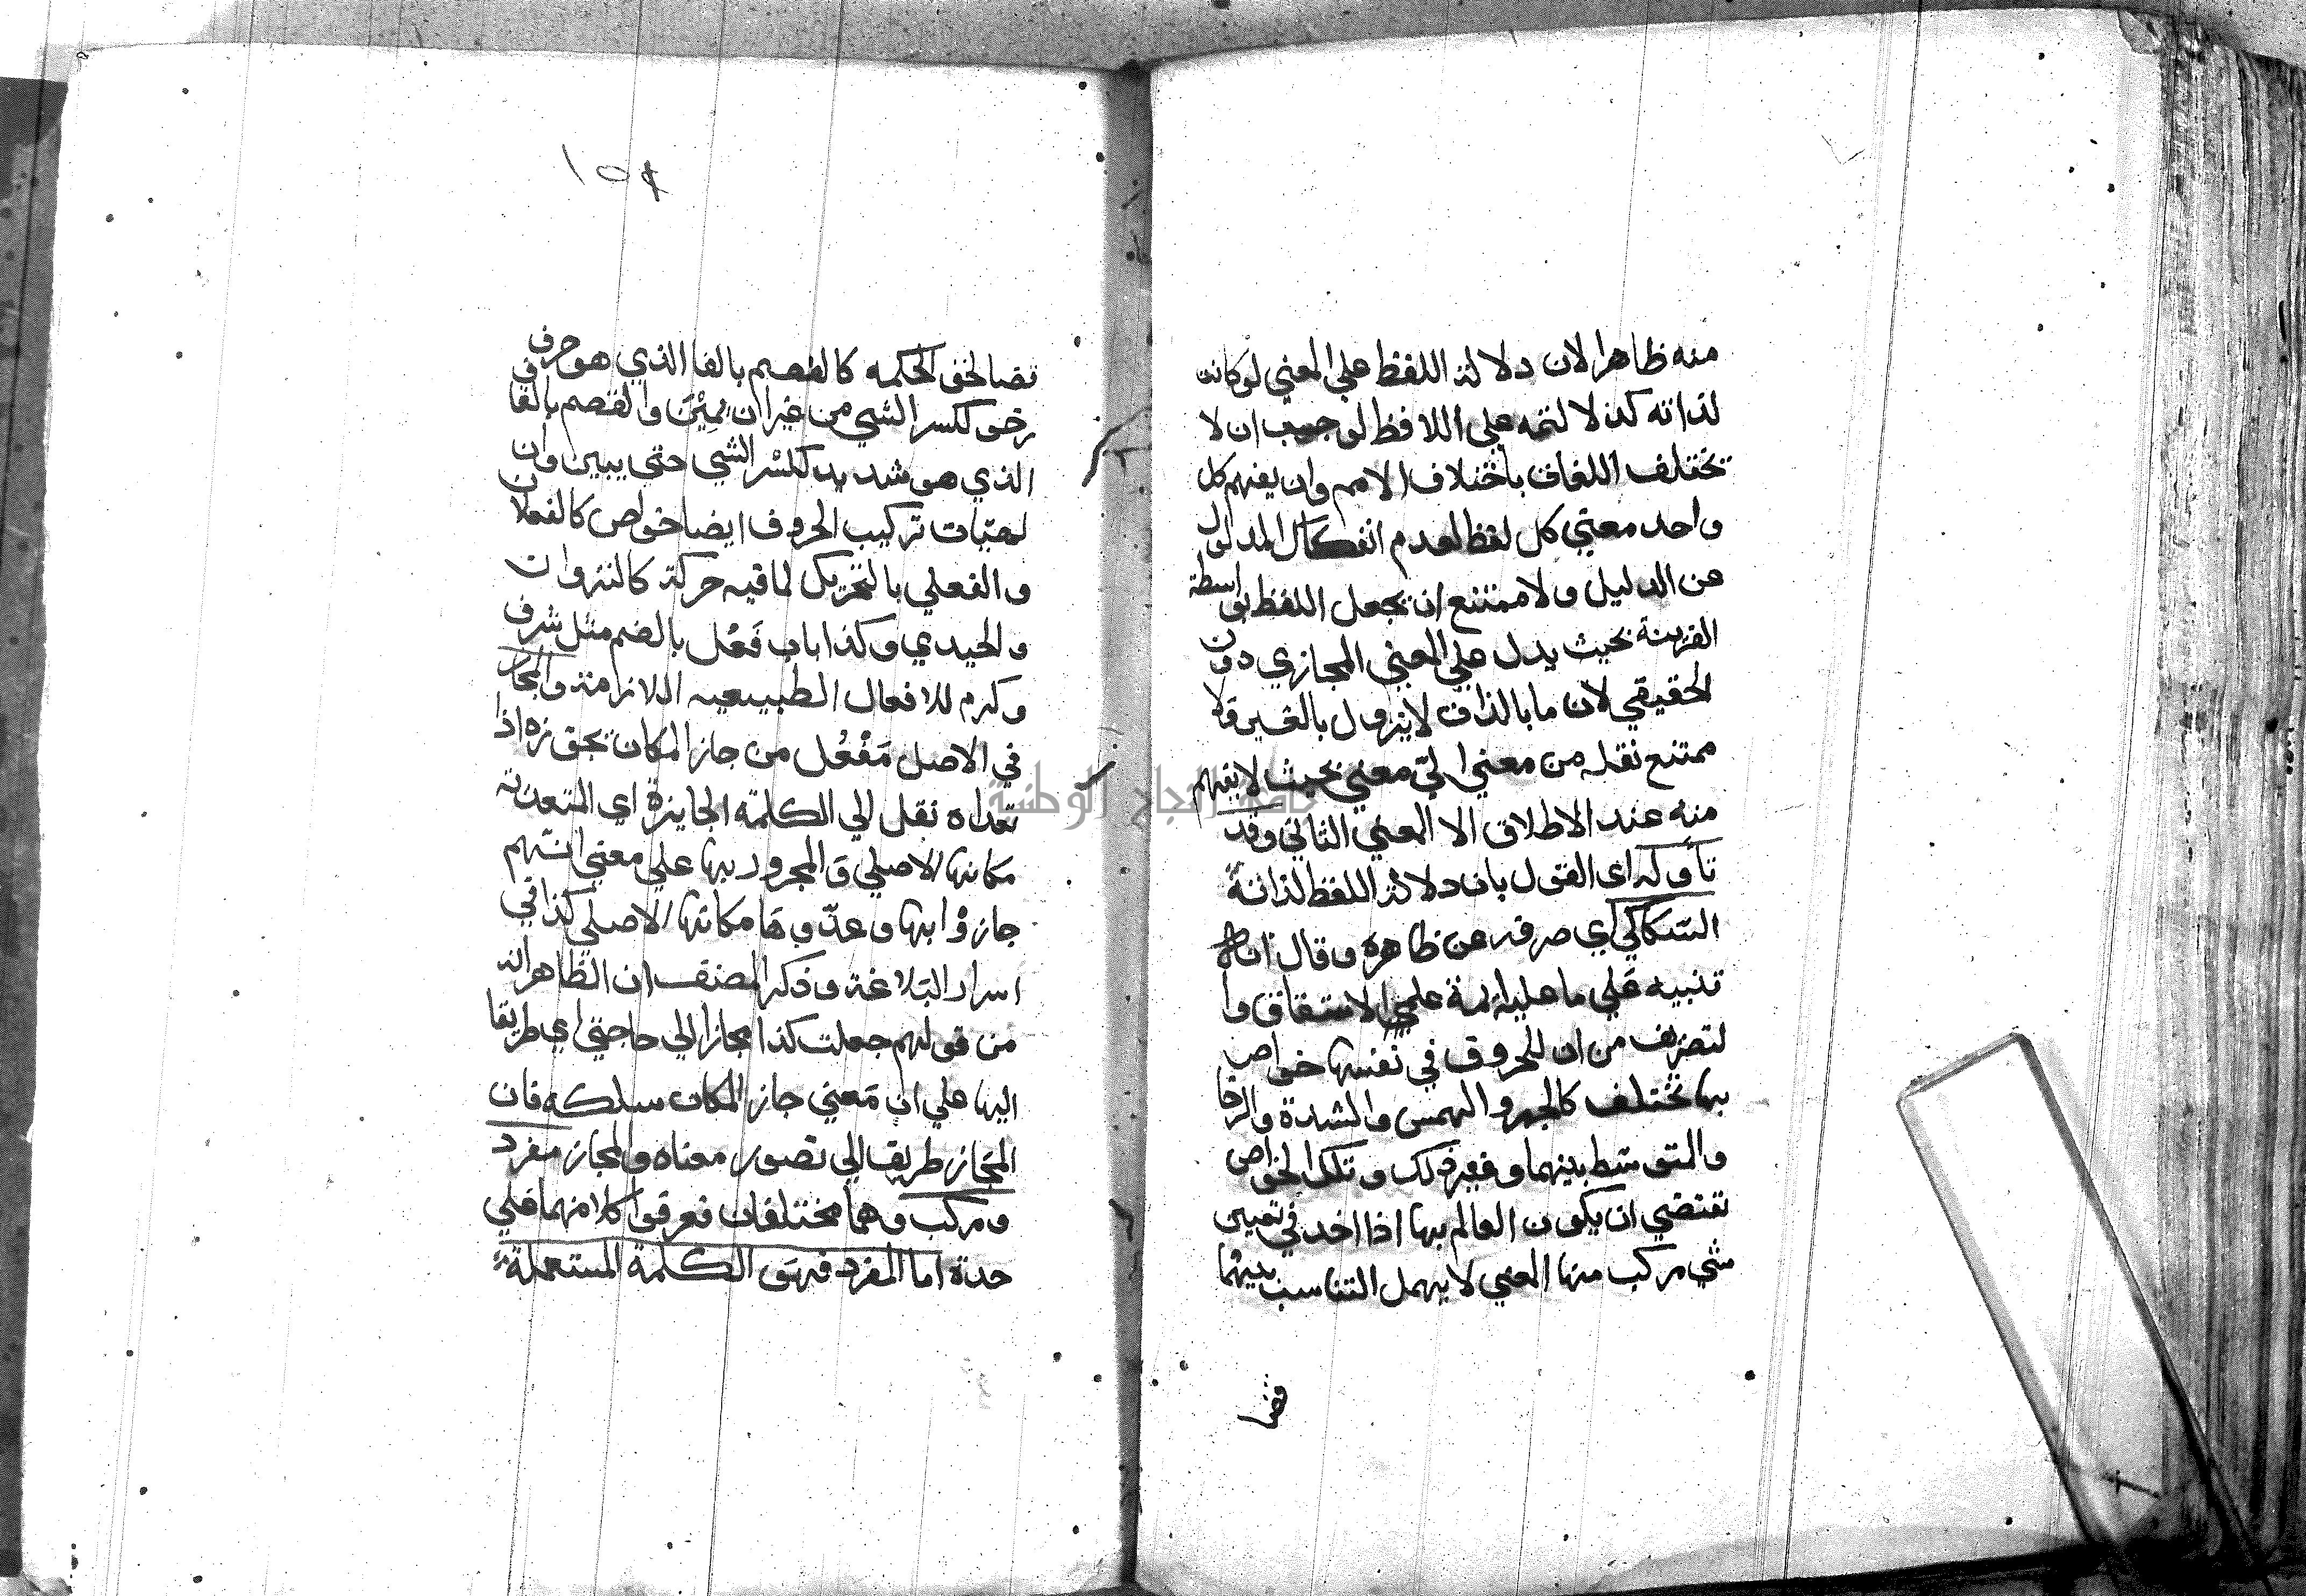 منه ظاهرا لان دلالة اللفظ علي المعني لو كانت
لذاته كدلالته علي اللافظ لوجب ان لا
تختلف اللغات باختلاف الامم وان يفهم كل
واحد معني كل لفظ لعدم انفكاك المدلول
عن الدليل ولامتنع ان يجعل اللفظ بواسطة
القرينة بحيث يدل علي المعني المجازي دون
الحقيقي لان ما بالذات لا يزول بالغير ولا
ممتنع نقله من معني الي معني بحيث لا يفهم
منه عند الاطلاق الا المعني الثاني وقد
تاوله اي القول بان دلالة اللفظ لذاته
السكاكي اي صرفه عن ظاهره وقال انه
تنبيه علي ما عليه ائمة علمي الاشتقاق وا
لتصريف من ان للحروف في نفسها خواص
بها تختلف كالجهر والهمس والشدة والرخا
والمتوسط بينهما وغير ذلك وتلك الخواص
تقتضي ان يكون العالم بها اذا اخد في تعيين
شي مركب منها لمعني لا يهمل التناسب بينهما
قضا
١٥٤
قضا لحق الحكمه كالفصم بالفا الذي هو حرف
رخو لكسر الشي من غير ان يبين والقصم بالقاف
الذي هو شديد لكسر الشي حتي يبين وان
لهيات تركيب الحروف ايضا خواص كالفعلان
والفعلي بالتحريك لما فيه حركة كالنزوان
والحيدي وكذا باب فَعُل بالضم مثل شرف
وكرم للافعال الطبيعيه اللازمة والمجاز
في الاصل مَفْعُل من جاز المكان يجوزه اذا
تعداه نقل الي الكلمة الجايزة اي المتعديه
مكانها الاصلي والمجرور بها علي معني انهم
جازوْا بها وعدّوها مكانها الاصلي كذا في
اسرار البلاغة وذكر المصنف ان الظاهر انه
من قولهم جعلت كذا مجازا الي حاجتي اي طريقا
اليها علي ان مَعني جاز المكان سلكه فان
المجاز طريق الي تصور معناه والمجاز مفرد
ومركب وهما مختلفان فعرفوا كلا منهما علي
حدة اما المفرد فهو الكلمة المستعملة
جامعة النجاح الوطنية